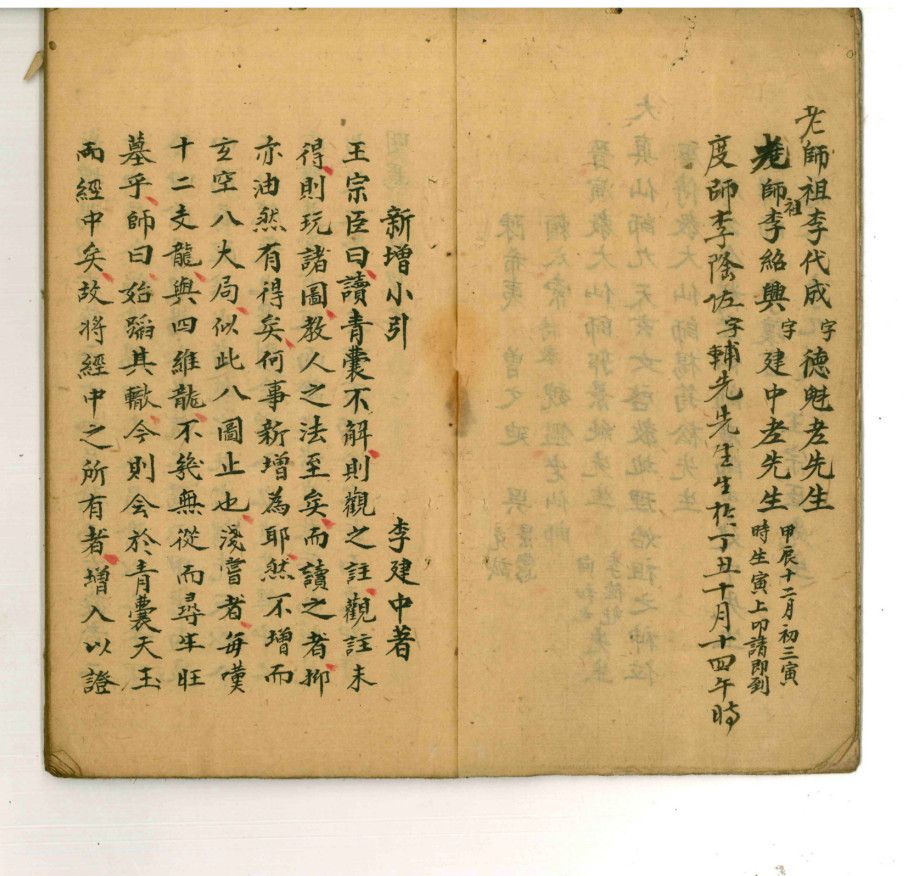 老師祖李代成字德魁老先生
老師祖李紹興字建中老先生
甲辰十二月初三寅
時生寅上叩請即到
度師李陰佐字輔先先生生於丁丑十月十四午時
新增小引
李建中著
王宗臣曰讀青囊不解則觀之註觀註未
得則玩諸圖教人之法至矣而讀之者抑
亦油然有得矣何事新增為耶然不增而
玄空八大局似此八圖止也淺嘗者每嘆
十二支龍與四維龍不幾無從而尋生旺
墓乎師曰始蹈其轍今則会於青囊天玉
兩經中矣故將經中之所有者增入以證